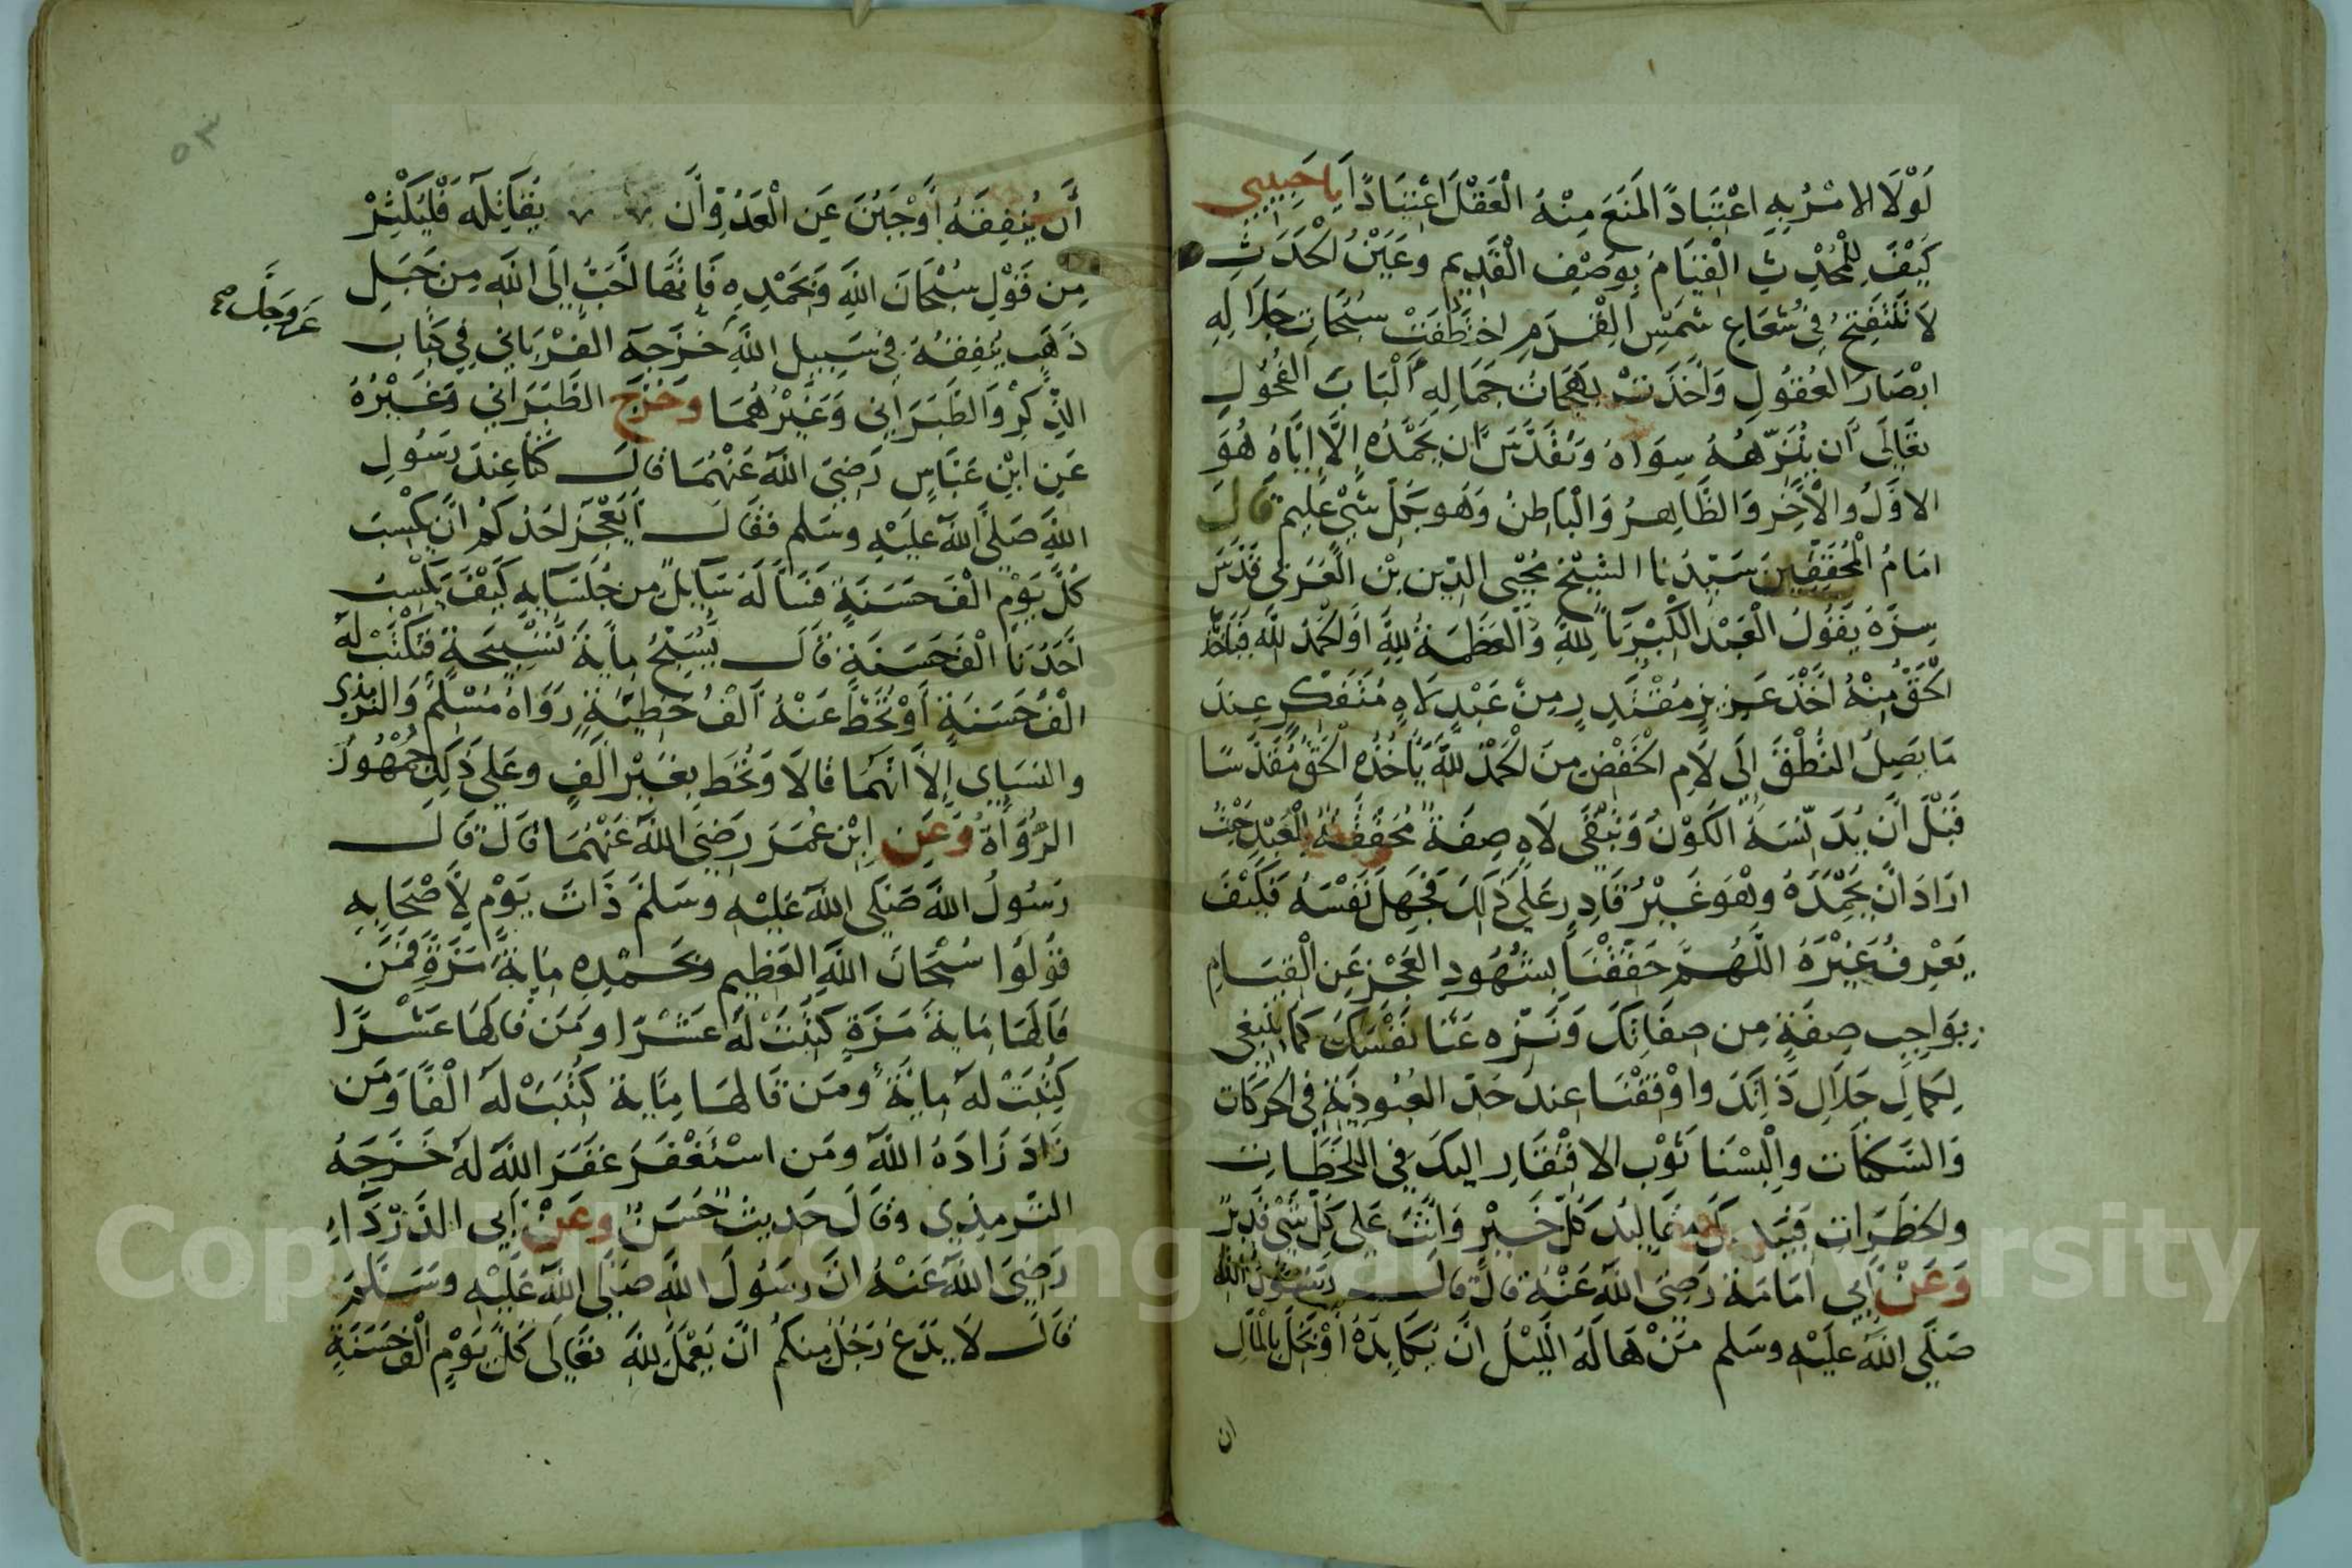 لَوْلَا الامْرُ بِهِ اعْتِبَادًا لَمَنَعَ مِنْهُ الْعَقْلَ اعْتِبَادًا يا حَبِيبِي
كَيْفَ لِلْمُحْدِثِ الْقِيَامُ بِوَصْفِ الْقَدِيمِ وعَيْنُ الحَدَثِ
لَا تَنْفَتِحُ فِي شُعَاعِ شَمْسِ الْقِدَمِ اختَطَفَتْ سُبُحَاتِ جَلَالِهِ
ابْصَارَ العُقُولِ وَاَخَذَتْ بَهَجَاتُ جَمَالِهِ اَلْبَابَ الفُحُولِ
تعَالَى اَن يُنَزِّهَهُ سِوَاهُ وَتَقَدَّسَ ان يَحْمَدُه اِلَّا اِيَّاهُ هُوَ
الاوَّلُ والْآخِر وَالظَّاهِرُ وَالْبَاطِنُ وَهُو بِكُلِّ شَيْءٍ عَلِيم قَالَ
امَامُ الْمُحَقِّقِينَ سَيِّدُنا الشيْخ مُحْيِى الدِّين بْن الْعَرَبِي قَدَّسَ
سِرَّهُ يَقُولُ الْعَبْد الْكِبْرِيَآ لِلهِ وَالْعَظَمَة لِلهِ اَوالحَمْدُ للهِ فَيَاخُذ
الْحَقُّ مِنْهُ اَخْذَ عَزِيزٍ مُقْتَدِرٍ مِنْ عَبْدٍ لَاهٍ مُتَفَكِّرٍ عِندَ
مَا يَصِلُ النُّطْقَ اِلَى لَامِ الْخَفْضِ مِنَ الْحَمْدُ للهِ يَأْخُذُه الْحَقُّ مُقَدَّسًا
قَبْلَ اَن يُدَنِّسَهُ الكَوْنُ وَتَبْقَى لَاهِ صِفَةً مُحَقَّقَةً لِلْعَبْدِ حَيْثُ
ارَادَ اَن يَحْمَدَهُ وهُوَ غَيْرُ قَادِرٍ عَلَى ذَلِكَ فَجَهِلَ نَفْسَهُ فَكَيْفَ
يَعْرِفُ غَيْرَهُ اللَّهُمَّ حَقِّقْنَا بِشُهُودِ العَجْزِ عَنِ الْقِيَامِ
بِوَاجِبِ صِفَةٍ مِن صِفَاتِكَ وَنَزِّه عَنَّا نَفْسَكَ كَمَا يَنْبَغِي
لِكَمَالِ جَلَالِ ذَاتِكَ واوْقِفْنَا عِندَ حَدِّ العُبُودِيَّةِ فِي الحرَكَات
وَالسَّكَنَات والْبِسْنَا ثَوْب الافْتِقَارِ اليكَ فِي اللَّحَظَاتِ
والخطَرَاتِ فَبِيَدِكَ مَقَالِيدُ كُلِّ خَيْرٍ وَاَنْتَ عَلى كُلِّ شَيْ قَدِيرٌ
وَعَنْ اَبِي امَامَةَ رَضِيَ اللهُ عَنْهُ قالَ قالَ رَسُول الله
صَلَّى اللهُ علَيْهِ وسَلم مَنْ هَالَهُ اللَّيْلُ اَنْ يُكَابِدَهُ اَوْ بَخِلَ بِالْمَالِ
ان
٥٣
أَن يُنفِقَهُ أوْ جَبُنَ عَنِ الْعَدُوِّ أن يُقَاتِلَهُ فَلْيُكْثِرْ
مِن قَوْلِ سُبْحَانَ اللهِ وَبِحَمْدِهِ فَاِنَّهَا أَحَبُّ اِلَى اللهِ مِن جَبَلِ
عَز وجَلَّ صح
ذَهَبٍ يُنفِقُهُ فِي سَبِيلِ اللهِ خَرَّجَهُ الفِرْيَابِي فِي كِتَابِ
الذِّكْرْ وَالطَّبَرَانِي وَغَيْرُهُمَا وخَرَّجَ الطَّبَرَانِي وَغَيْرُهُ
عَنِ ابْنِ عَبَّاسٍ رَضِيَ اللهُ عَنْهُمَا قالَ كُنَّا عِندَ رَسُولِ
اللهِ صَلَّى اللهُ عَلَيْهِ وسَلم فقَالَ اَيَعْجَز احَدُكُم اَن يَكْسِبَ
كُلَّ يَوْمٍ الْفَ حَسَنَةٍ فَسَالَهُ سَآيلٌ مِن جُلَسَآيِهِ كَيْفَ يَكْسِبُ
اَحَدُنَا الْفَ حَسَنَةٍ قالَ يُسَبِّحُ مِايَةَ تَسْبِيحَةٍ فتُكْتَبْ لَهُ
الْفُ حَسَنَةٍ أوْ تُحَطُّ عَنْهُ اَلْفُ خَطِيَّةٍ رَوَاهُ مُسْلِمٌ وَالترمِذِي
والنسَاي اِلَّا انَّهُمَا قالَا وَتُحَط بِغَيْرِ الَفٍ وعَلى ذَلِك جُمْهُورُ
الرُّوَاة وَعَنِ ابْن عُمَرَ رَضِيَ اللهُ عَنْهُمَا قالَ قَالَ
رَسُولُ اللهِ صَلَّى اللهُ عَلَيْهِ وسَلمَ ذَاتَ يَوْمٍ لِأَصْحَابِهِ
قُولُوا سُبْحَانَ اللهِ العَظِيمِ وبِحَمْدِهِ مِايَةَ مَرَّةٍ فمَن
قَالَهَا مِايَةَ مَرَّةٍ كُتِبَتْ لَهُ عَشْرًا ومَن قَالَهَا عَشْرًا
كُتِبَتْ لهُ مِايَةً ومَن قَالهَا مِايَة كُتِبَتْ لَهُ الْفًا وَمَن
زَادَ زَادَهُ اللهُ ومَن اسْتَغْفَرَ غَفَرَ اللهُ لَهُ خَرَّجَهُ
التّرمِذِي وقَالَ حَدِيثٌ حَسَنٌ وعَنْ اَبِي الدَّرْدَاءِ
رَضِيَ اللهُ عَنْهُ انَّ رَسُولَ اللهِ صَلَّى اللهُ عَلَيْهِ وسَلَّمَ
قَالَ لَا يَدَعْ رَجُلٌ مِنكُم انْ يَعْمَلَ لِلهِ تعَالَى كُلَّ يَوْمٍ الْفَ حَسَنَةٍ